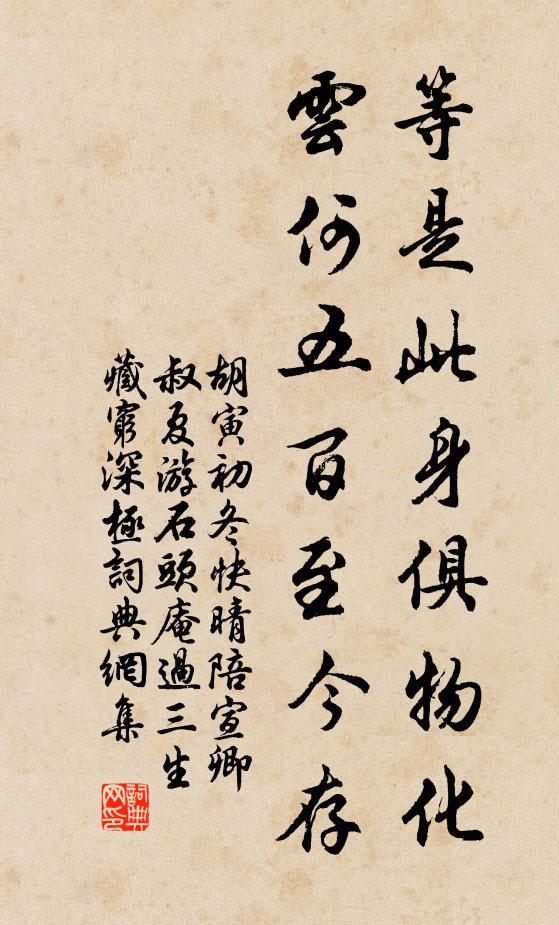 等是此身俱物化
雲何五百至今存
胡寅初冬快晴陪宣卿
叔夏游石頭庵過三生
藏窮深極詞典網集
詞典
网印